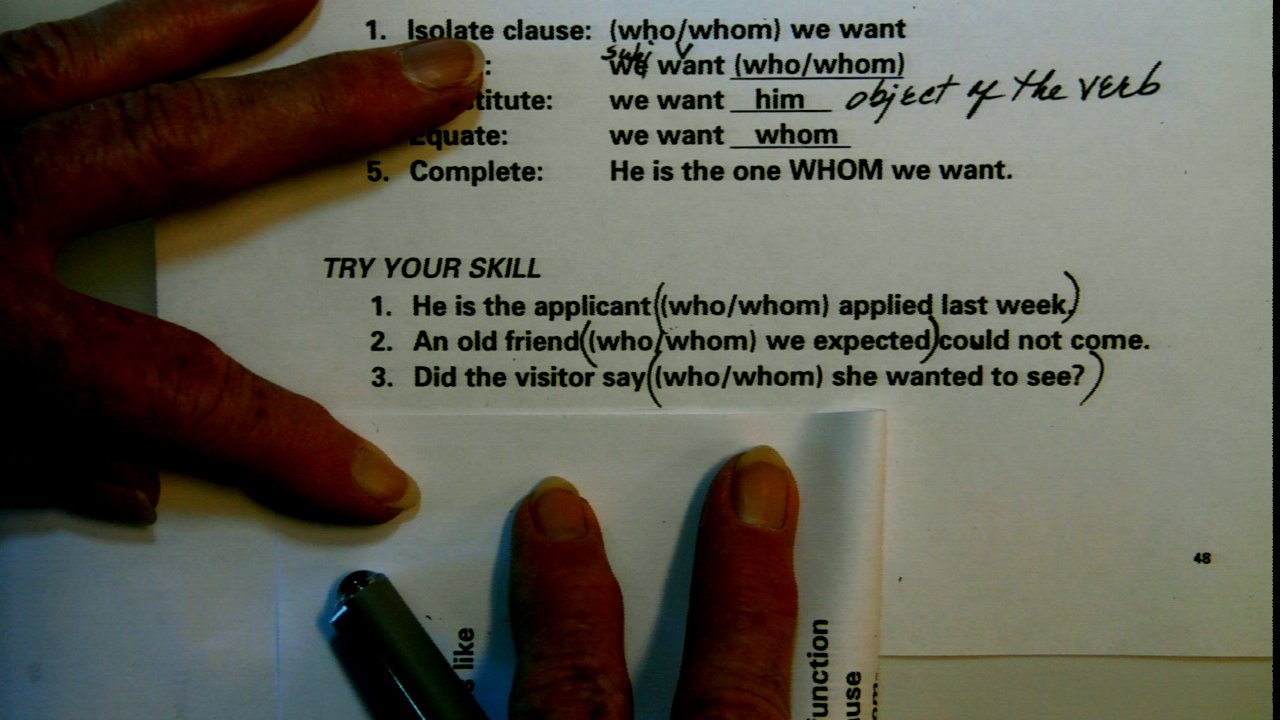 1. Isolate clause: (who/whom) we want
subj v
: we want (who/whom)
titute: we want him object of the verb
Equate: we want whom
5. Complete: He is the one WHOM we want.
TRY YOUR SKILL
1. He is the applicant ((who/whom) applied last week.)
2. An old friend ((who/whom) we expected) could not come.
3. Did the visitor say ((who/whom) she wanted to see?)
48
like
unction
use